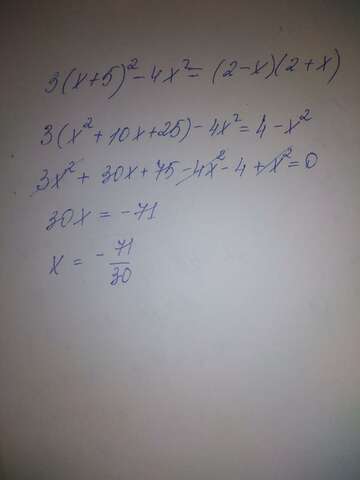 3(x+5)² - 4x² = (2-x)(2+x)
3(x² + 10x + 25) - 4x² = 4 - x²
3x² + 30x + 75 - 4x² - 4 + x² = 0
30x = -71
x = - 71/30